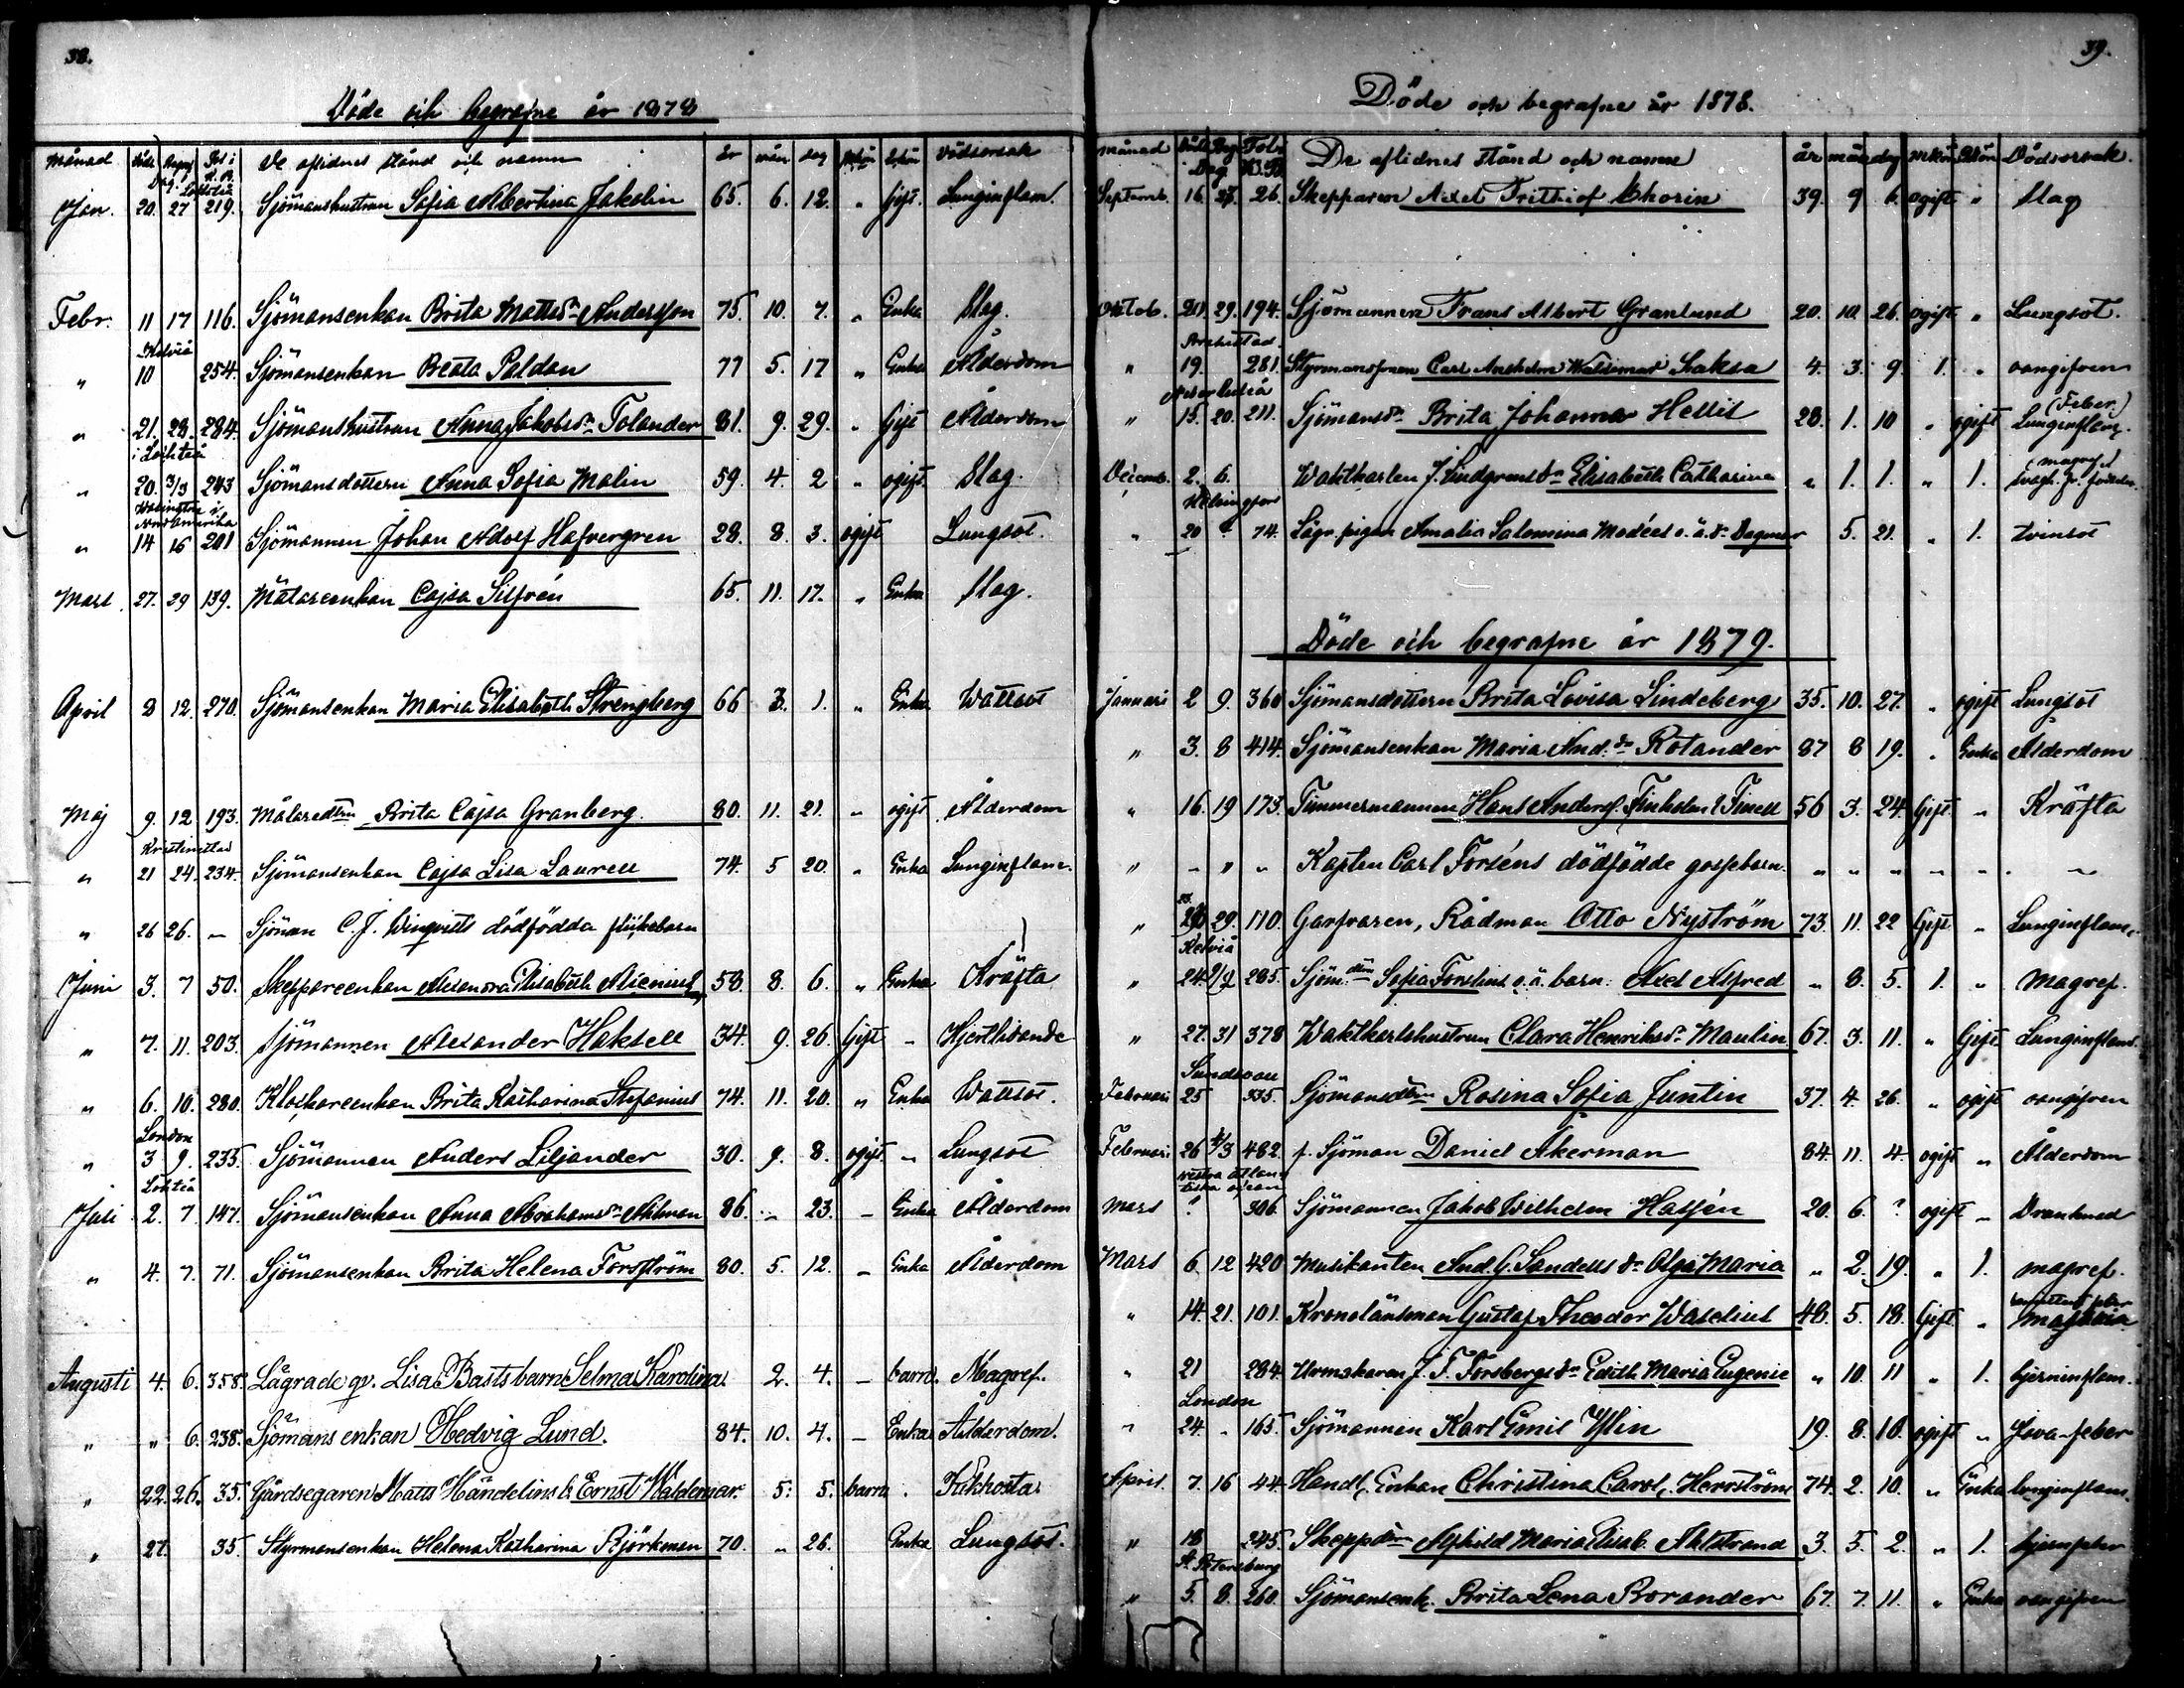 38.
Döde och begrafne år 1878
Månad Död Begr. Dag. Fol. i K.B. De aflidnes stånd och namn år mån dag Mkön Qkön Dödsorsak
Lochteå
Jan. 20. 27 219. Sjömanshustrun Sofia Albertina Jakolin 65. 6. 12. " gift. Lunginflam.
Febr. 11 17 116. Sjömansenkan Brita Mattsdr Andersson 75. 10. 7. " Enka Slag.
Kelviå
" 10 254. Sjömansenkan Beata Paldan 77 5. 17 " Enka Ålderdom
" 21. 28. 284. Sjömanshustrun Anna Jakobsdr Tolander 81. 9. 29. " Gift Ålderdom
i Lochteå
" 20. 3/3 243 Sjömansdottern Anna Sofia Malin 59. 4. 2 " ogift Slag.
i Nordamerika
" 14 16 201 Sjömannen Johan Adolf Hafvergren 28. 8. 3. ogift Lungsot.
Mars. 27. 29 139. Målareenkan Cajsa Silfvén 65. 11. 17. " Enka Slag.
April 8 12. 270. Sjömansenkan Maria Elisabeth Strengberg 66 3. 1. " Enka Wattsot
Maj 9. 12 193. Målaredtrn Brita Cajsa Granberg. 80. 11. 21. " ogift Ålderdom
Kristinestad
" 21 24. 234. Sjömansenkan Cajsa Lisa Laurell 74. 5 20. " Enka Lunginflam.
" 26 26. — Sjöman C. J. Winqvists dödfödda flickebarn
Juni 3. 7 50. Skeppareenkan Alexandra Elisabeth Alcenius 58. 8. 6. " Enka Kräfta
" 7. 11. 203. Sjömannen Alexander Haksell 34. 9. 26. Gift - Hjertlidande
" 6. 10. 280. Klockareenkan Brita Katharina Stefanius 74. 11. 20. " Enka Wattsot.
London
" 3 9. 235. Sjömannen Anders Liljander 30. 9. 8. ogift " Lungsot
Lohteå
Juli 2. 7 147. Sjömansenkan Anna Abrahamsdr Ahlman 86. - 23. - Enka Ålderdom
" 4. 7. 71. Sjömansenkan Brita Helena Forsström 80. 5. 12. - Enka Ålderdom
Augusti 4. 6. 358. Lägrade qv. Lisa Basts barn Selma Karolina. 2. 4. - barn. Magref.
" " 6. 238. Sjömans enkan Hedvig Lund. 84. 10. 4. - Enka Ålderdom.
" 22. 26. 35. Gårdsegaren Matts Händelins b. Ernst Waldemar. 5. 5. barn. Kikhosta
" 27. 35. Styrmansenkan Helena Katharina Björkman 70. " 26. Enka Lungsot.
39.
Döde och begrafne år 1878.
Månad Död Beg. Dag. Fol. K.B. De aflidnes stånd och namn år mån dag Mkön Qkön Dödsorsak.
Septemb. 16. 27. 26. Skepparen Axel Frithiof Chorin 39. 9 6. ogift " Slag
Octob. 21. 29. 194. Sjömannen Frans Albert Granlund 20. 10. 26. ogift " Lungsot.
" 19. 281. Styrmanssonen Carl Anshelm Waldemar Saksa 4. 3. 9. 1. " oangifven
" 15. 20. 211. Sjömansdr Brita Johanna Hellst 28. 1. 10 " ogift Lunginflam. (Feber)
Decemb. 2. 6. Waktkarlen J. Lindgrens dr Elisabeth Catharina " 1. 1. " 1. (magref)
Helsingfors
" 20 " 74. Lägr. pigan Amalia Salomina Modéls o. ä. dr Dagmar 5. 21. " 1. tvinsot
Döde och begrafne år 1879.
Januari 2 9. 360 Sjömansdottern Brita Lovisa Lindeberg 35. 10. 27. " ogift Lungsot
" 3. 8 414. Sjömansenkan Maria And.dr Rolander 87 8 19. " Enka Ålderdom
" 16. 19 173. Timmermannen Hans Andersf. Finholm l. Finell 56 3. 24. Gift. " Kräfta
" - " " Kapten Carl Forséns dödfödde gossebarn. " " " " " "
" 26 29. 110. Garfvaren, Rådman Otto Nyström 73. 11. 22 Gift " Lunginflam.
Kelviå
" 24. 2/2 285. Sjöm.dtrn Sofia Forslins o. ä. barn. Axel Alfred " 8. 5. 1. " Magref.
" 27. 31 378 Waktkarlshustrun Clara Henriksdr Maulin 67. 3. 11. " Gift Lunginflam.
Sundsvall
Februari 25 335. Sjömansdtrn Rosina Sofia Juntin 37. 4. 26. " ogift oangifven
Februari. 26 4/3 482. f. Sjöman Daniel Åkerman 84. 11. 4. ogift " Ålderdom
vestra atlantiska ocean
Mars ? 306. Sjömannen Jakob Wilhelm Hassén 20. 6. ? ogift " Drunknad
Mars 6 12 420 Musikanten And. G. Sandells dr Olga Maria " 2. 19. " 1. magref.
" 14. 21. 101. Kronolänsman Gustaf Theodor Waselius 48. 5. 18. Gift "
" 21 284. Urmakaren J. F. Forsbergs dr Edith Maria Eugenie " 10. 11 " 1. hjerninflam.
London
" 24. " 165. Sjömannen Karl Emil Yslin 19. 8. 10. ogift " Java-feber
April. 7. 16 44 Handl. Enkan Christina Carol. Herrström 74. 2. 10. " Enka lunginflam.
" 18 245. Skeppdtrn Alfhild Maria Elisab. Ahlstrand 3. 5. 2. " 1. hjernfeber
St. Petersburg
" 5. 8. 260. Sjömansenk. Brita Lena Borander 67. 7. 11. " Enka oangifven